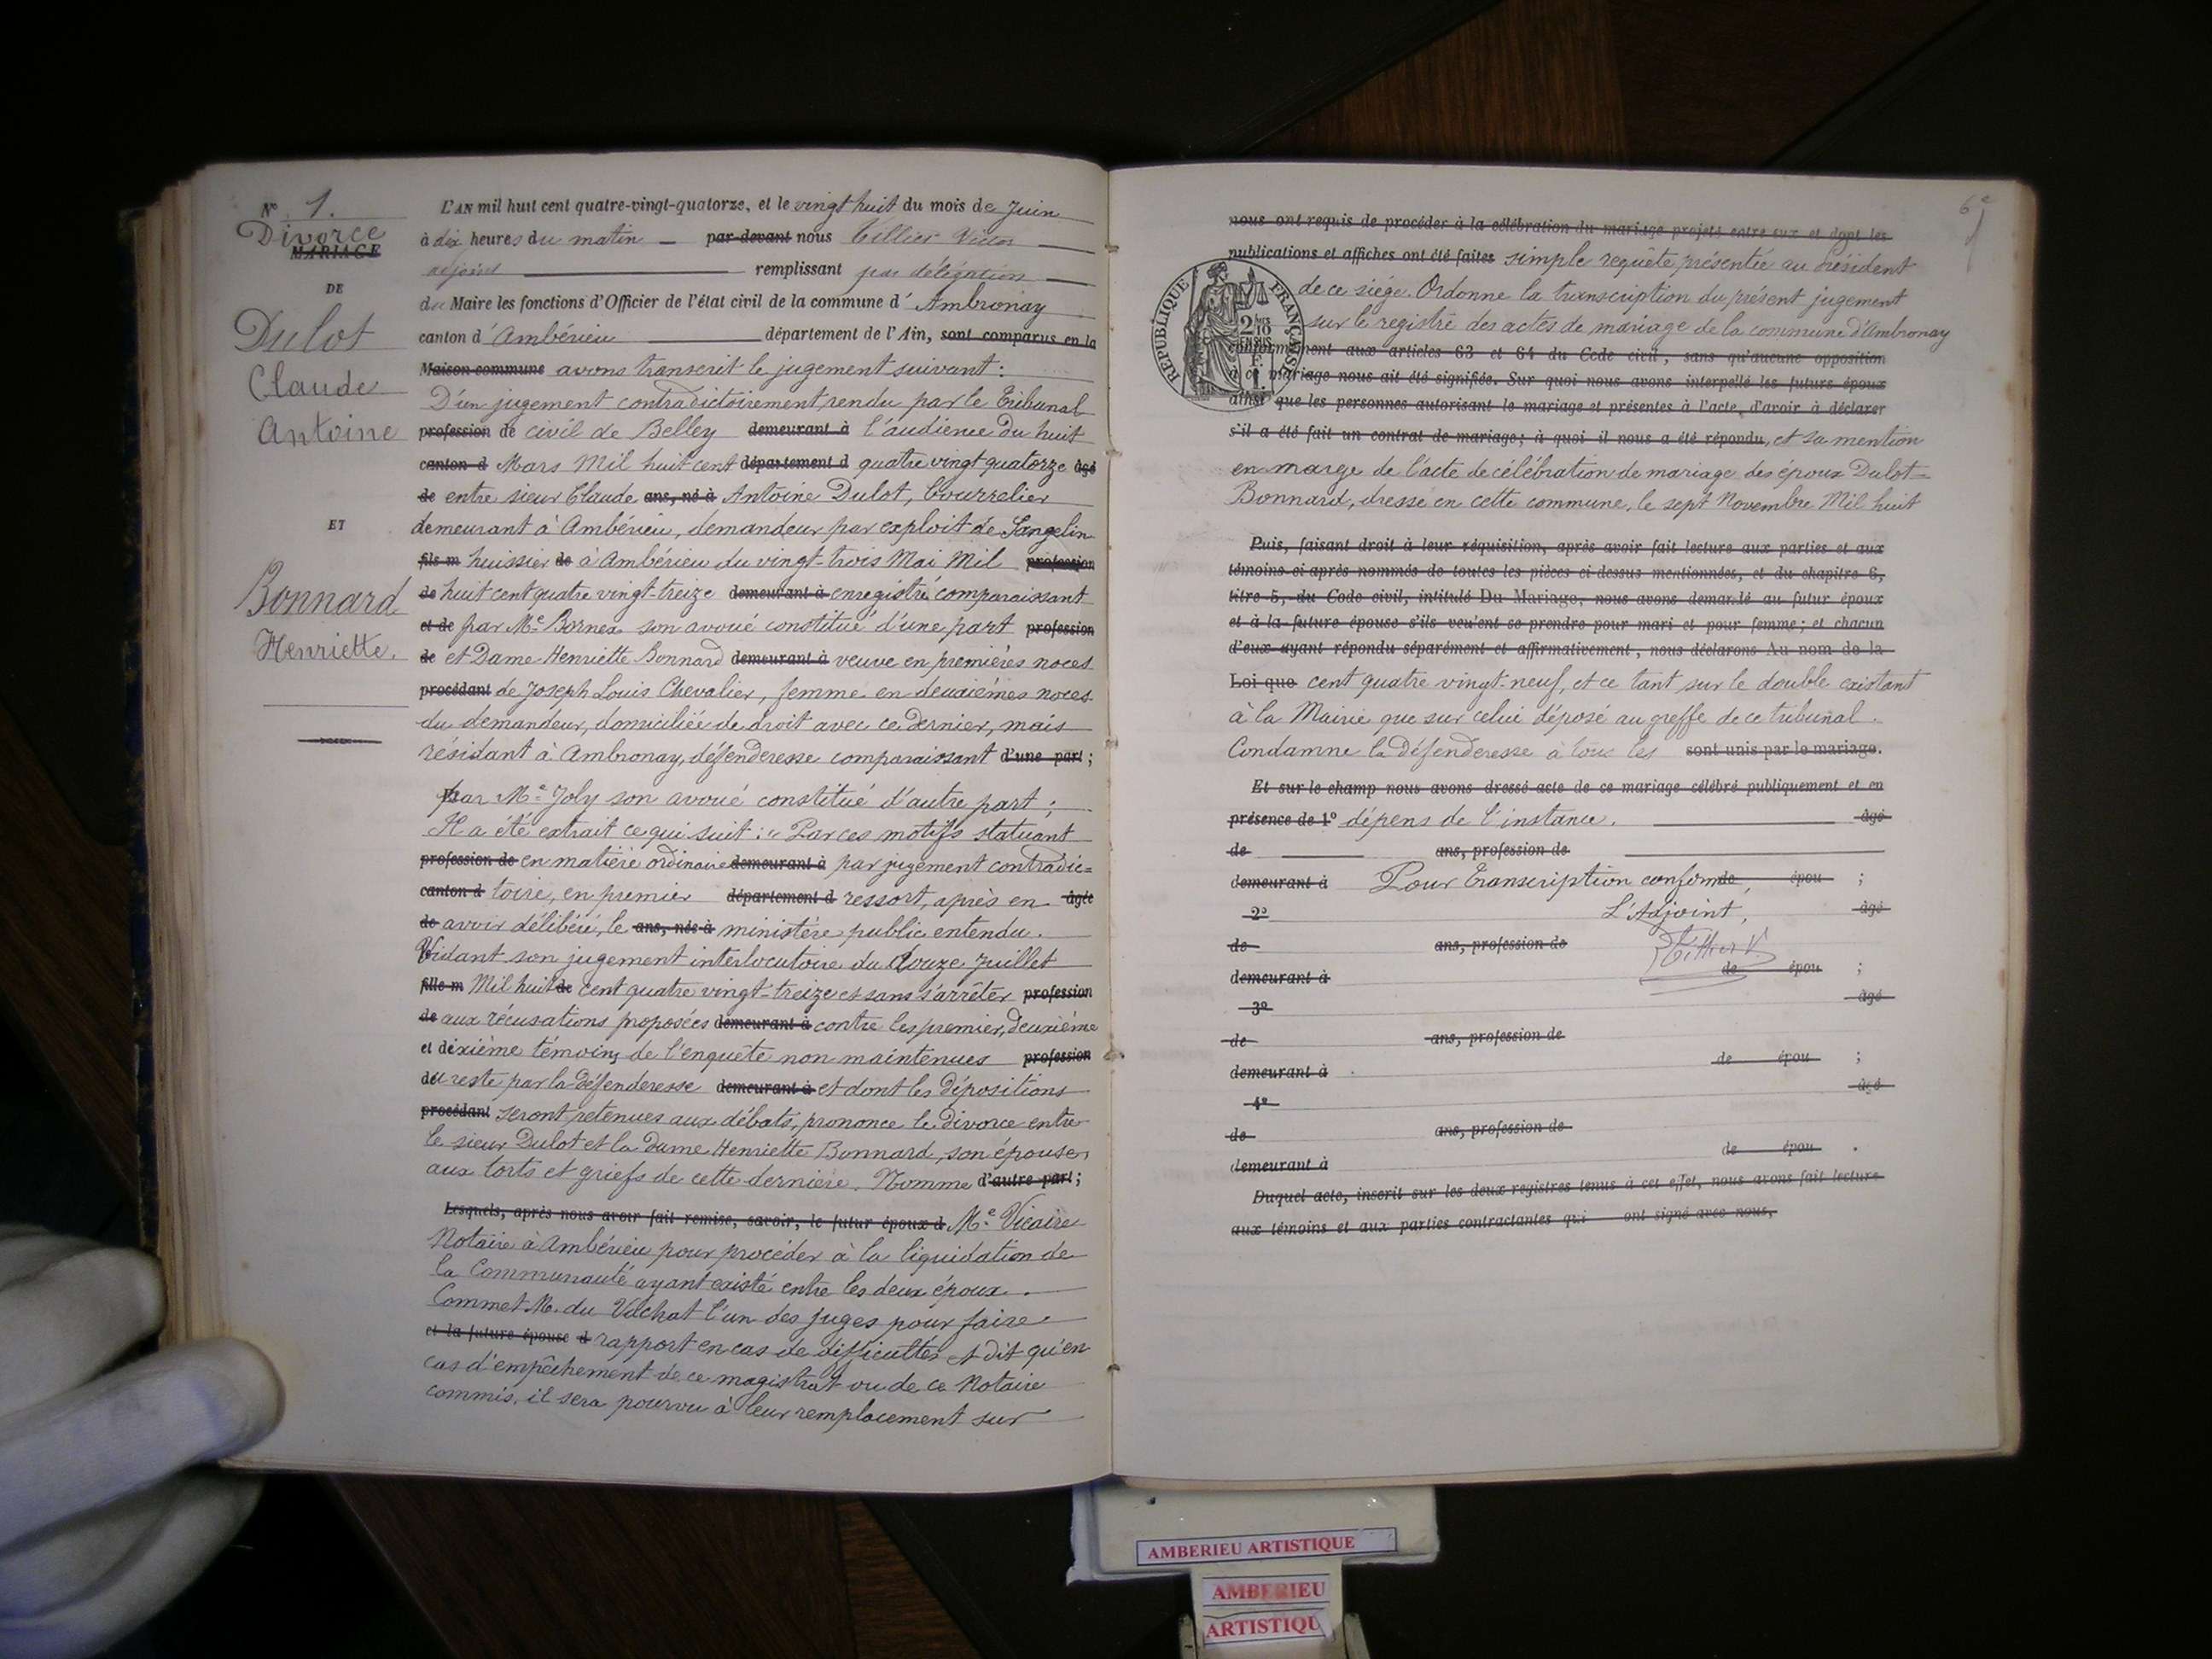 N° 1.
Divorce
MARIAGE
DE
Dulot
Claude
Antoine
ET
Bonnard
Henriette.
L'AN mil huit cent quatre-vingt-quatorze, et le vingt huit du mois de Juin
à dix heures du matin — par-devant nous Tillier Victor
adjoint remplissant par délégation
du Maire les fonctions d'Officier de l'état civil de la commune d' Ambronay
canton d' Ambérieu département de l'Ain, sont comparus en la
Maison commune avons transcrit le jugement suivant :
D'un jugement contradictoirement rendu par le Tribunal
profession de civil de Belley demeurant à l'audience du huit
canton d Mars Mil huit cent département d quatre vingt quatorze âgé
de entre sieur Claude ans, né à Antoine Dulot, bourrelier
demeurant à Ambérieu, demandeur par exploit de Sangelin
fils m huissier de à Ambérieu du vingt-trois Mai Mil profession
de huit cent quatre vingt-treize demeurant à enregistré comparaissant
et de par Me Bornex son avoué constitué d'une part profession
de et Dame Henriette Bonnard demeurant à veuve en premières noces
procédant de Joseph Louis Chevalier, femme en deuxièmes noces
du demandeur, domiciliée de droit avec ce dernier, mais
résidant à Ambronay, défenderesse comparaissant d'une part ;
par Me Joly son avoué constitué d'autre part ;
Il a été extrait ce qui suit : « Par ces motifs statuant
profession de en matière ordinaire demeurant à par jugement contradic=
canton d toire, en premier département d ressort, après en âgée
de avoir délibéré, le ans, née à ministère public entendu.
Vidant son jugement interlocutoire du douze Juillet
fille m Mil huit de cent quatre vingt-treize et sans s'arrêter profession
de aux récusations proposées demeurant à contre les premier, deuxième
et dixième témoins de l'enquête non maintenues profession
du reste par la défenderesse demeurant à et dont les dépositions
procédant seront retenues aux débats, prononce le divorce entre
le sieur Dulot et la dame Henriette Bonnard, son épouse,
aux torts et griefs de cette dernière. Nomme d'autre part ;
Lesquels, après nous avoir fait remise, savoir, le futur époux d Me Vicaire
Notaire à Ambérieu pour procéder à la liquidation de
la Communauté ayant existé entre les deux époux.
Commet M. du Vachat l'un des juges pour faire
et la future épouse d rapport en cas de difficultés et dit qu'en
cas d'empêchement de ce magistrat ou de ce Notaire
commis, il sera pourvu à leur remplacement sur
6e
nous ont requis de procéder à la célébration du mariage projeté entre eux et dont les
publications et affiches ont été faites simple requête présentée au Président
de ce siége. Ordonne la transcription du présent jugement
sur le registre des actes de mariage de la commune d'Ambronay
RÉPUBLIQUE FRANÇAISE
conformément aux articles 63 et 64 du Code civil, sans qu'aucune opposition
à ce mariage nous ait été signifiée. Sur quoi nous avons interpellé les futurs époux
ainsi que les personnes autorisant le mariage et présentes à l'acte, d'avoir à déclarer
s'il a été fait un contrat de mariage ; à quoi il nous a été répondu, et sa mention
en marge de l'acte de célébration de mariage des époux Dulot=
Bonnard, dressé en cette commune, le sept Novembre Mil huit
Puis, faisant droit à leur réquisition, après avoir fait lecture aux parties et aux
témoins ci-après nommés de toutes les pièces ci-dessus mentionnées, et du chapitre 6,
titre 5, du Code civil, intitulé Du Mariage, nous avons demandé au futur époux
et à la future épouse s'ils veulent se prendre pour mari et pour femme ; et chacun
d'eux ayant répondu séparément et affirmativement, nous déclarons Au nom de la
Loi que cent quatre vingt-neuf, et ce tant sur le double existant
à la Mairie que sur celui déposé au greffe de ce tribunal.
Condamne la défenderesse à tous les sont unis par le mariage.
Et sur le champ nous avons dressé acte de ce mariage célébré publiquement et en
présence de 1° dépens de l'instance. âgé
de ans, profession de
demeurant à Pour Transcription conforme, de épou ;
2° L'Adjoint, âgé
de ans, profession de Tillier V.
demeurant à de épou ;
3° âgé
de ans, profession de
demeurant à de épou ;
4° âgé
de ans, profession de
demeurant à de épou .
Duquel acte, inscrit sur les deux registres tenus à cet effet, nous avons fait lecture
aux témoins et aux parties contractantes qui ont signé avec nous,
AMBERIEU ARTISTIQUE
AMBERIEU
ARTISTIQU